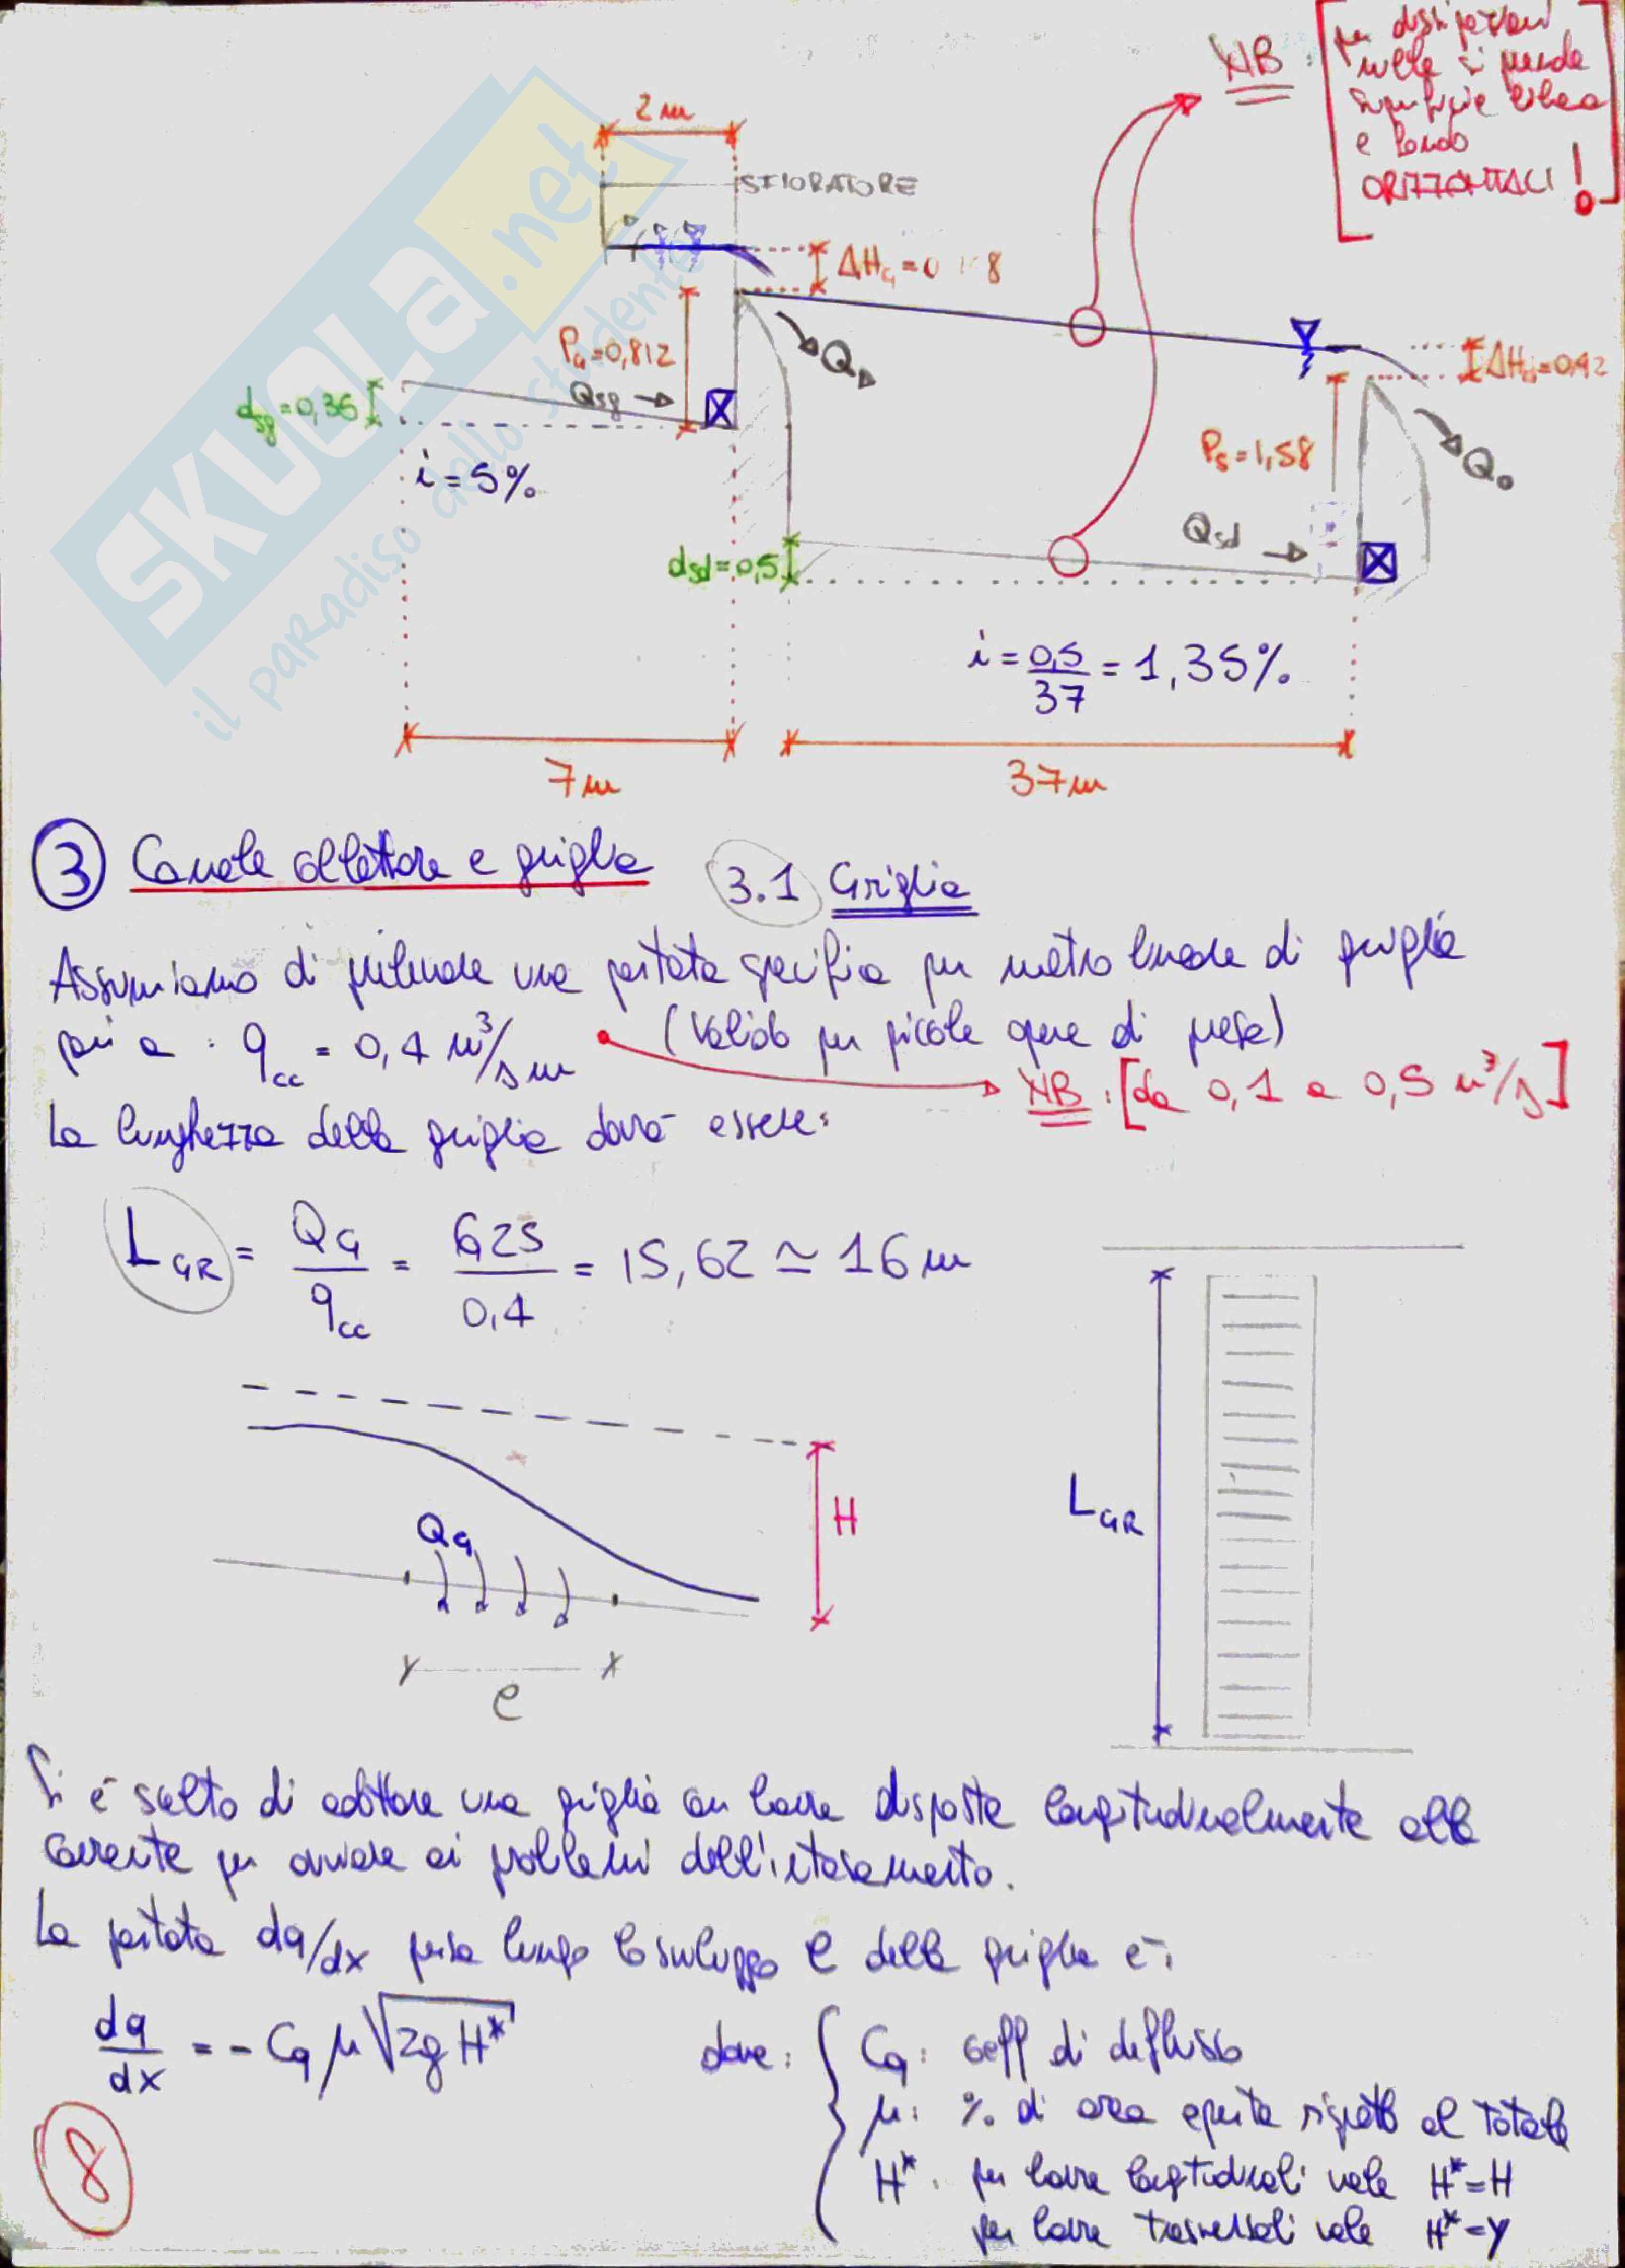 NB: per dissipazioni
nulle si prende
superficie libera
e fondo
ORIZZONTALI!
2 m
SFIORATORE
ΔHg = 0 8
Pg = 0,812
Qsg →
dsg = 0,35
i = 5%
ΔHd = 0,42
Ps = 1,58
Q₀
Qsd →
dsd = 0,5
i = 0,5/37 = 1,35%
7 m
37 m
SKUOLA.net
il paradiso dello studente
3 Canale collettore e griglia 3.1 Griglia
Assumiamo di prelevare una portata specifica per metro lineare di griglia
pari a: qcc = 0,4 m³/s m (Valido per piccole opere di presa)
NB: [da 0,1 a 0,5 m³/s]
La lunghezza della griglia dovrà essere:
LGR = QG/qcc = 6,25/0,4 = 15,62 ≃ 16 m
H
QG
LGR
e
Si è scelto di adottare una griglia con barre disposte longitudinalmente alla
corrente per ovviare ai problemi dell'intasamento.
La portata dq/dx persa lungo lo sviluppo e della griglia è:
dq/dx = - Cq μ √2gH* dove: Cq: coeff di deflusso
μ: % di area aperta rispetto al totale
H*: per barre longitudinali vale H* = H
per barre trasversali vale H* = Y
8